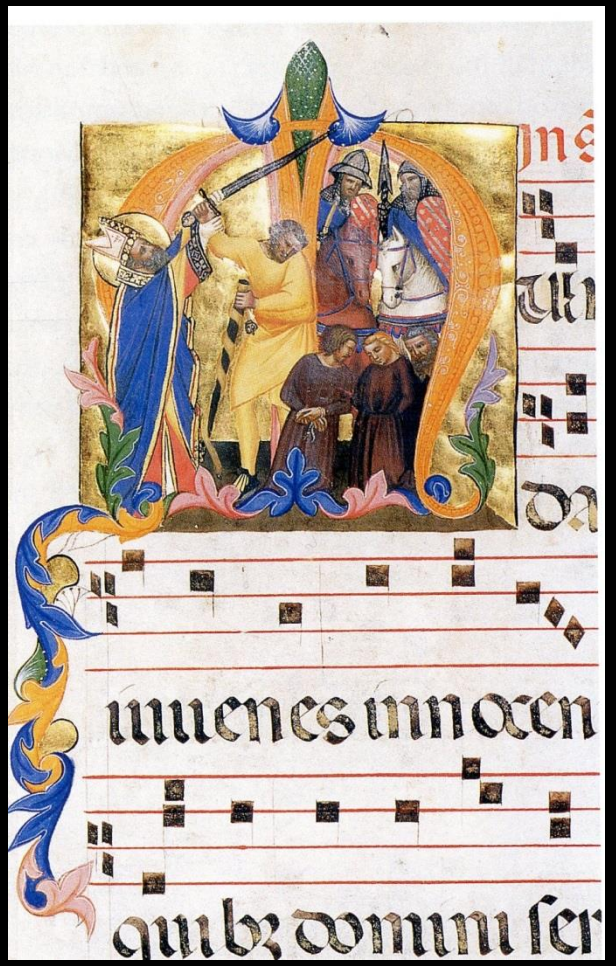 In s
iuuenes innocen
quibꝫ domini ser